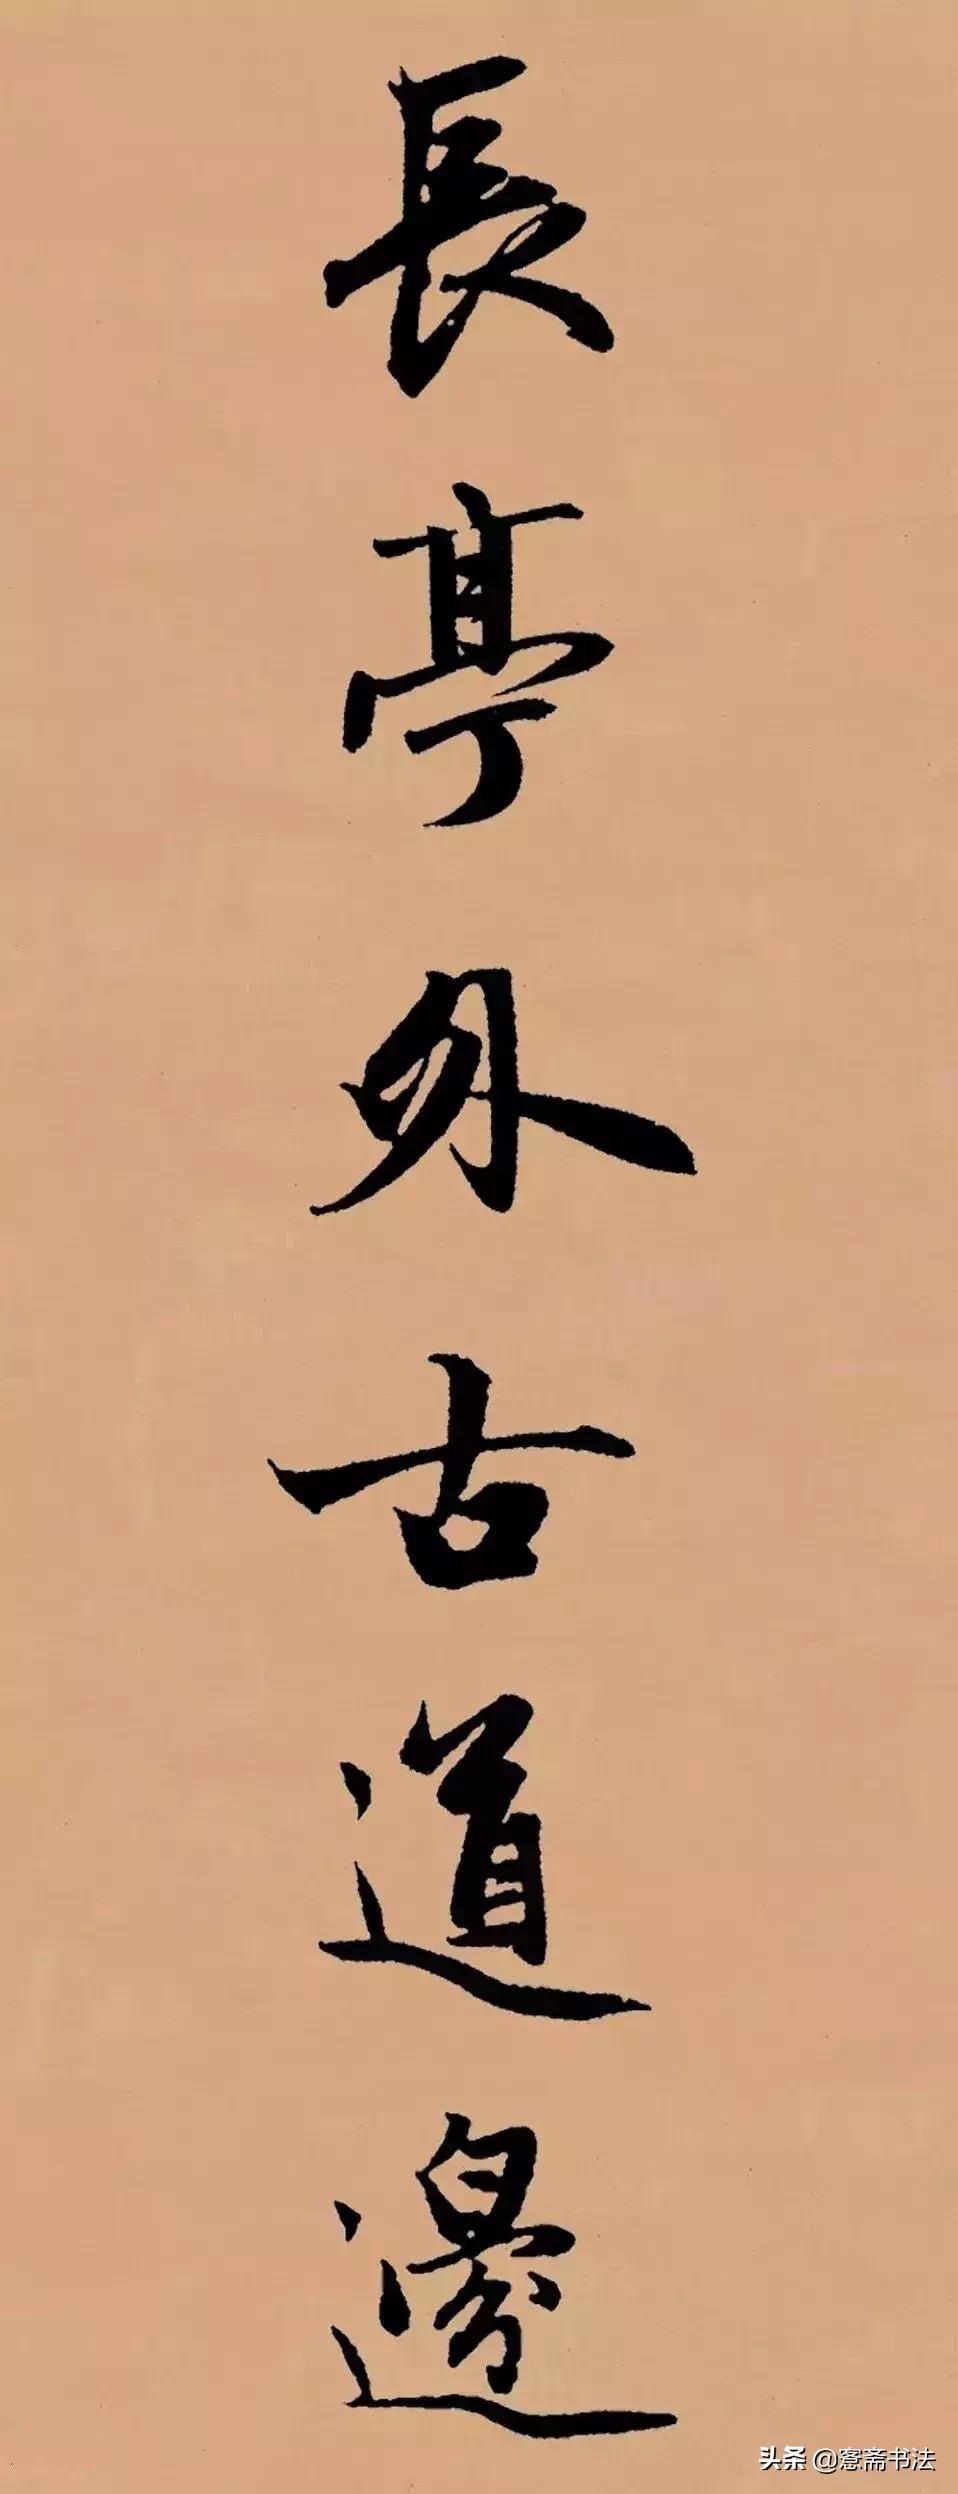 長亭外古道邊
头条 @寋斋书法